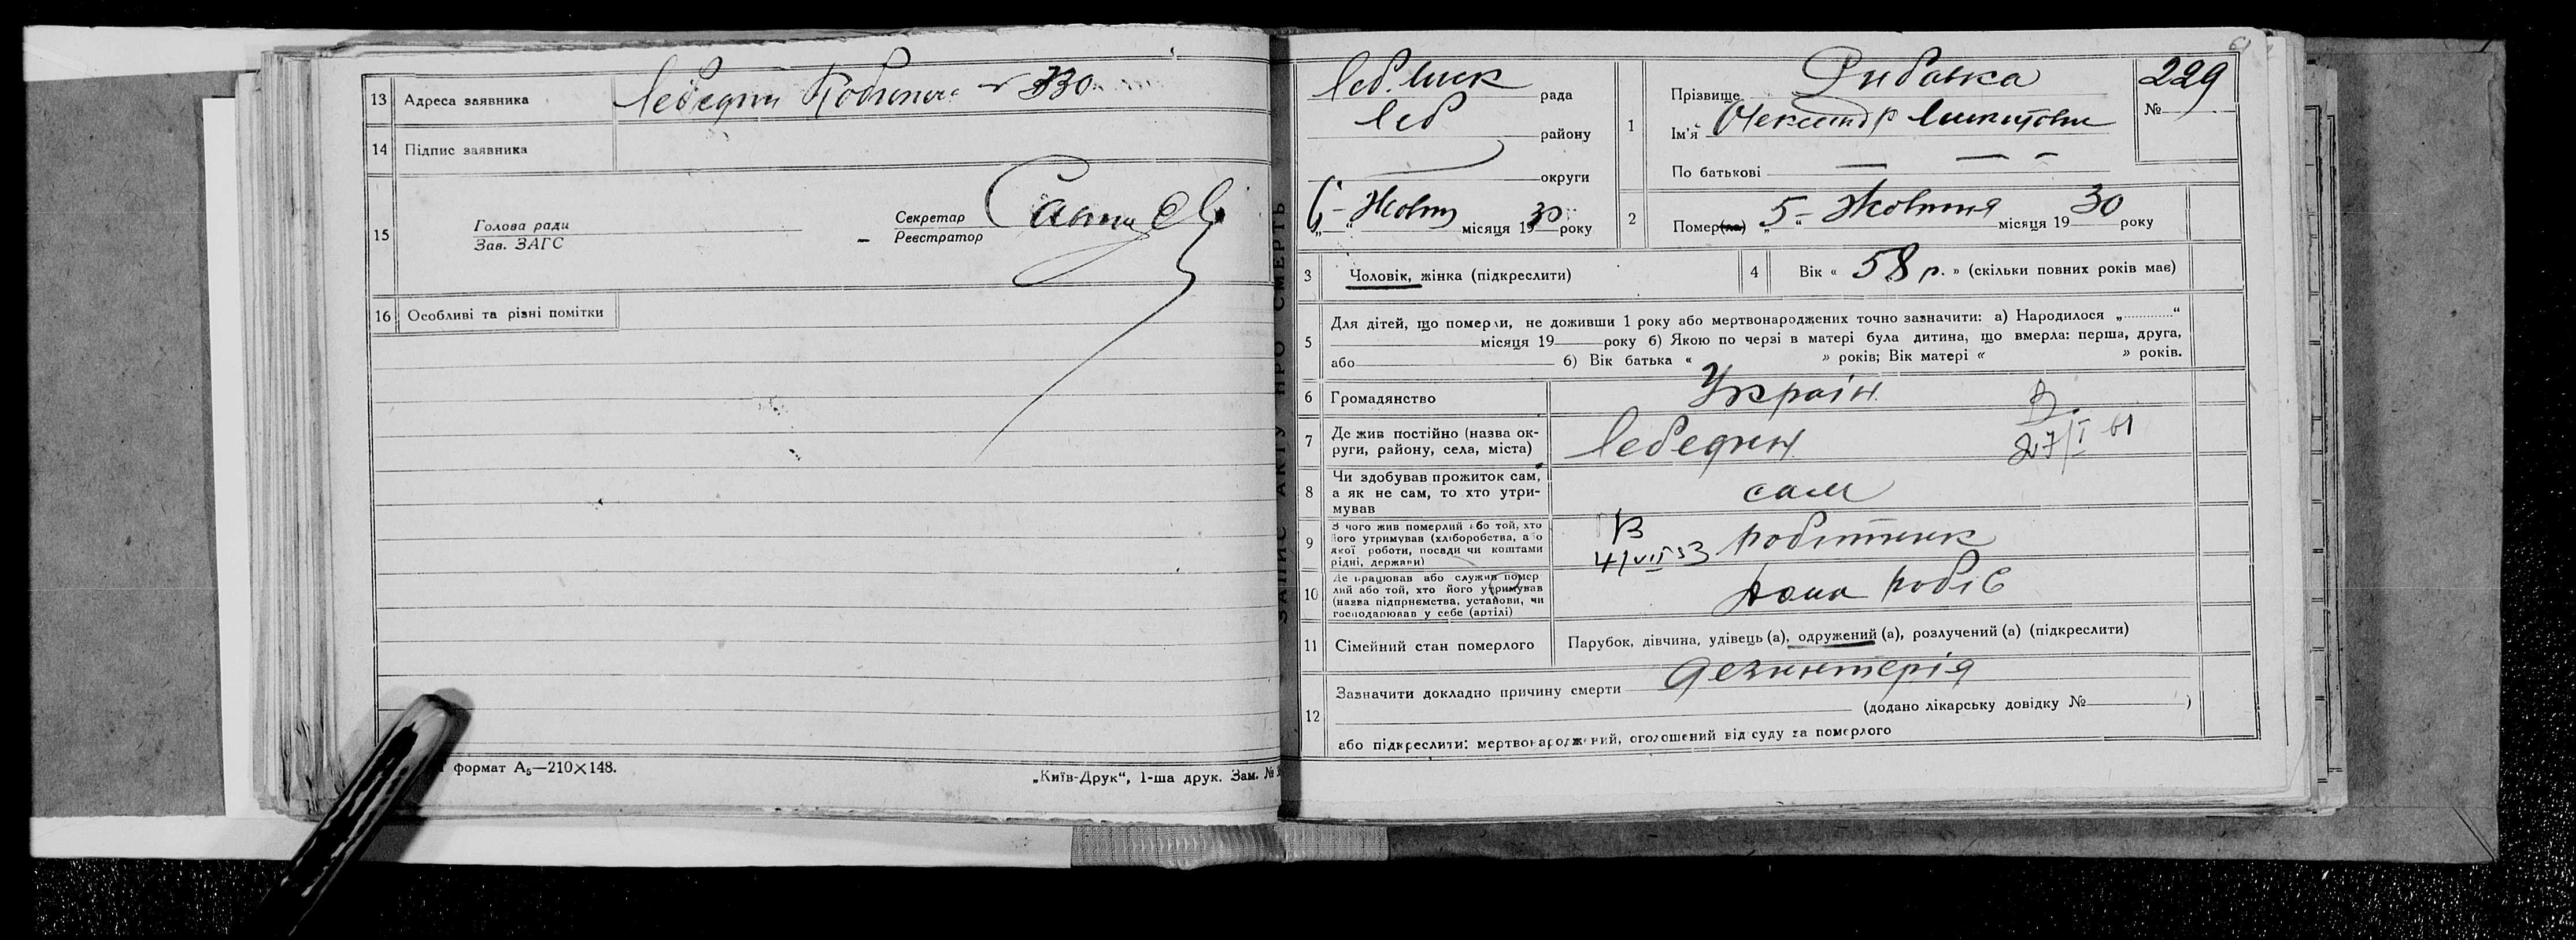 13 Адреса заявника Лебедин 330
14 Підпис заявника
15 Голова ради
Зав. ЗАГС
Секретар
Реєстратор
16 Особливі та різні помітки
формат А5—210×148.
„Київ-Друк“, 1-ша друк. Зам. №
ЗАПИС АКТУ ПРО СМЕРТЬ
рада
Леб району
округи
6 - Жовтн місяця 1930 року
1 Прізвище Рибалка
Ім'я Олександр
По батькові — — —
229
№
2 Помер(ла) „ 5 - “ Жовтня місяця 1930 року
3 Чоловік, жінка (підкреслити)
4 Вік « 58 р. » (скільки повних років має)
5 Для дітей, що померли, не доживши 1 року або мертвонароджених точно зазначити: а) Народилося „ “
місяця 19 року б) Якою по черзі в матері була дитина, що вмерла: перша, друга,
або б) Вік батька « » років; Вік матері « » років.
6 Громадянство Україн
В
27/I 61
7 Де жив постійно (назва ок-
руги, району, села, міста) Лебедин
8 Чи здобував прожиток сам,
а як не сам, то хто утри-
мував
сам
9 З чого жив померлий або той, хто
його утримував (хліборобства, або
якої роботи, посади чи коштами
рідні, держави)
В
4/VII 53 робітник
10 Де працював або служив помер
лий або той, хто його утримував
(назва підприємства, установи, чи
господарював у себе (артілі)
дома робів
11 Сімейний стан померлого Парубок, дівчина, удівець (а), одружений (а), розлучений (а) (підкреслити)
12 Зазначити докладно причину смерти дезинтерія
(додано лікарську довідку № )
або підкреслити: мертвонароджений, оголошений від суду за померлого